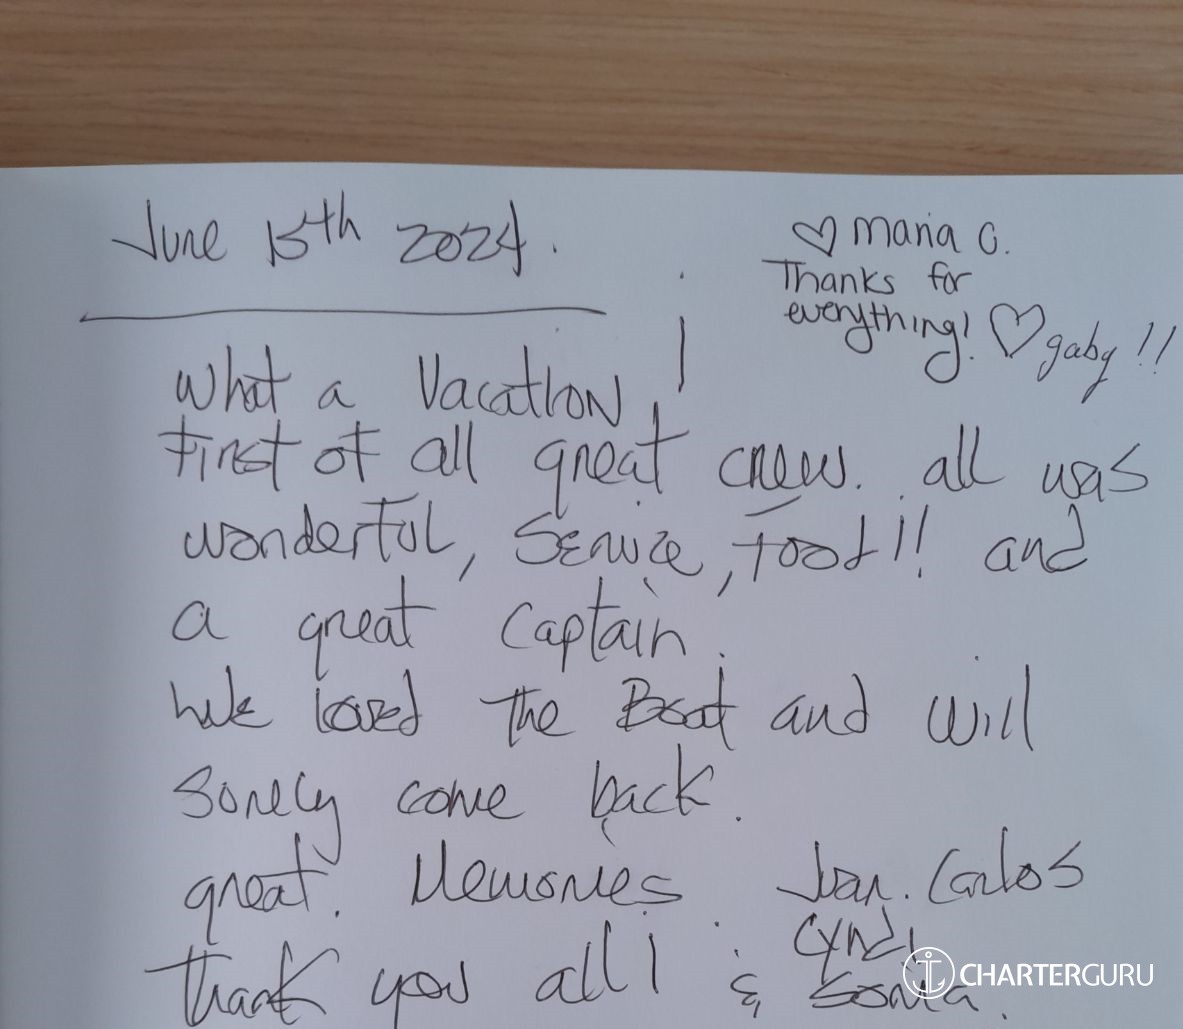 June 15th 2024.
♡ Maria C.
Thanks for
everything! ♡ gaby !!
What a Vacation!
First of all great crew. all was
wonderful, Service, Food!! and
a great Captain.
We loved the Boat and will
surely come back.
great. Memories
Thank you all!
Juan. Carlos
Cyndi
& Sonia.
CHARTERGURU